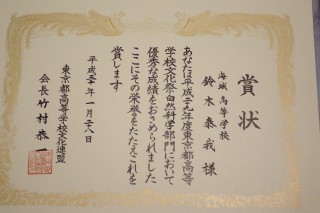 賞状
海城高等学校
鈴木泰我様
あなたは平成二十九年度東京都高等
学校文化祭自然科学部門において
優秀な成績をおさめられました
ここにその栄誉をたたえこれを
賞します
平成三十年一月二十八日
東京都高等学校文化連盟
会長竹村恭一